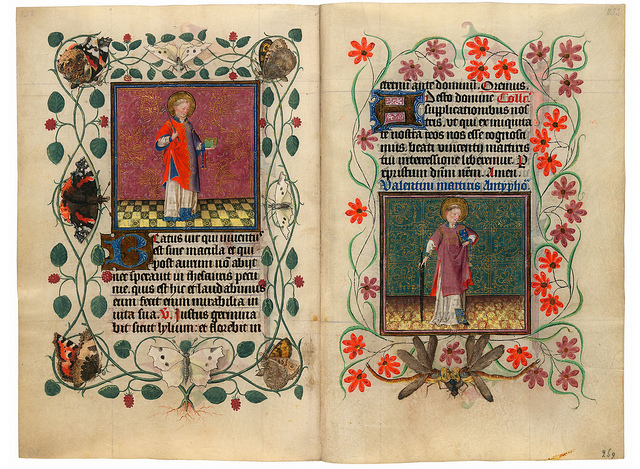 Beatus uir qui inuentus
est sine macula et qui
post aurum nō abijt
nec sperauit in thesauris pecu
nie. quis est hic et laudabimus
eum fecit enim mirabilia in
uita sua. V. Justus germina
bit sicut lylium: et florebit in
eternū ante dominū. Oremus.
Adesto domine Colle
supplicationibus nos
tris. ut qui ex iniquita
te nostra reos nos esse cognosci
mus. beati vincentij martiris
tui intercessione liberemur. P
xpistum dnūm nrm. Amen.
Valentini martiris Antypho.
269